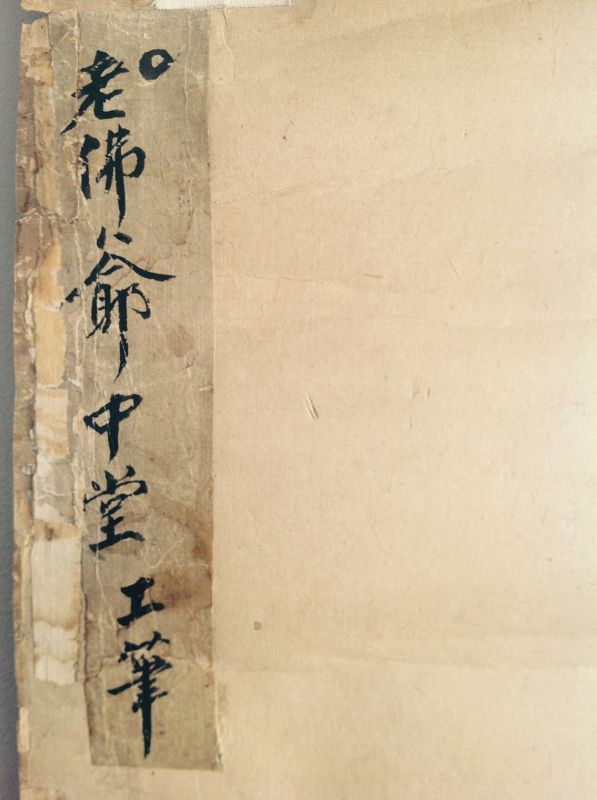 老佛爺中堂工筆